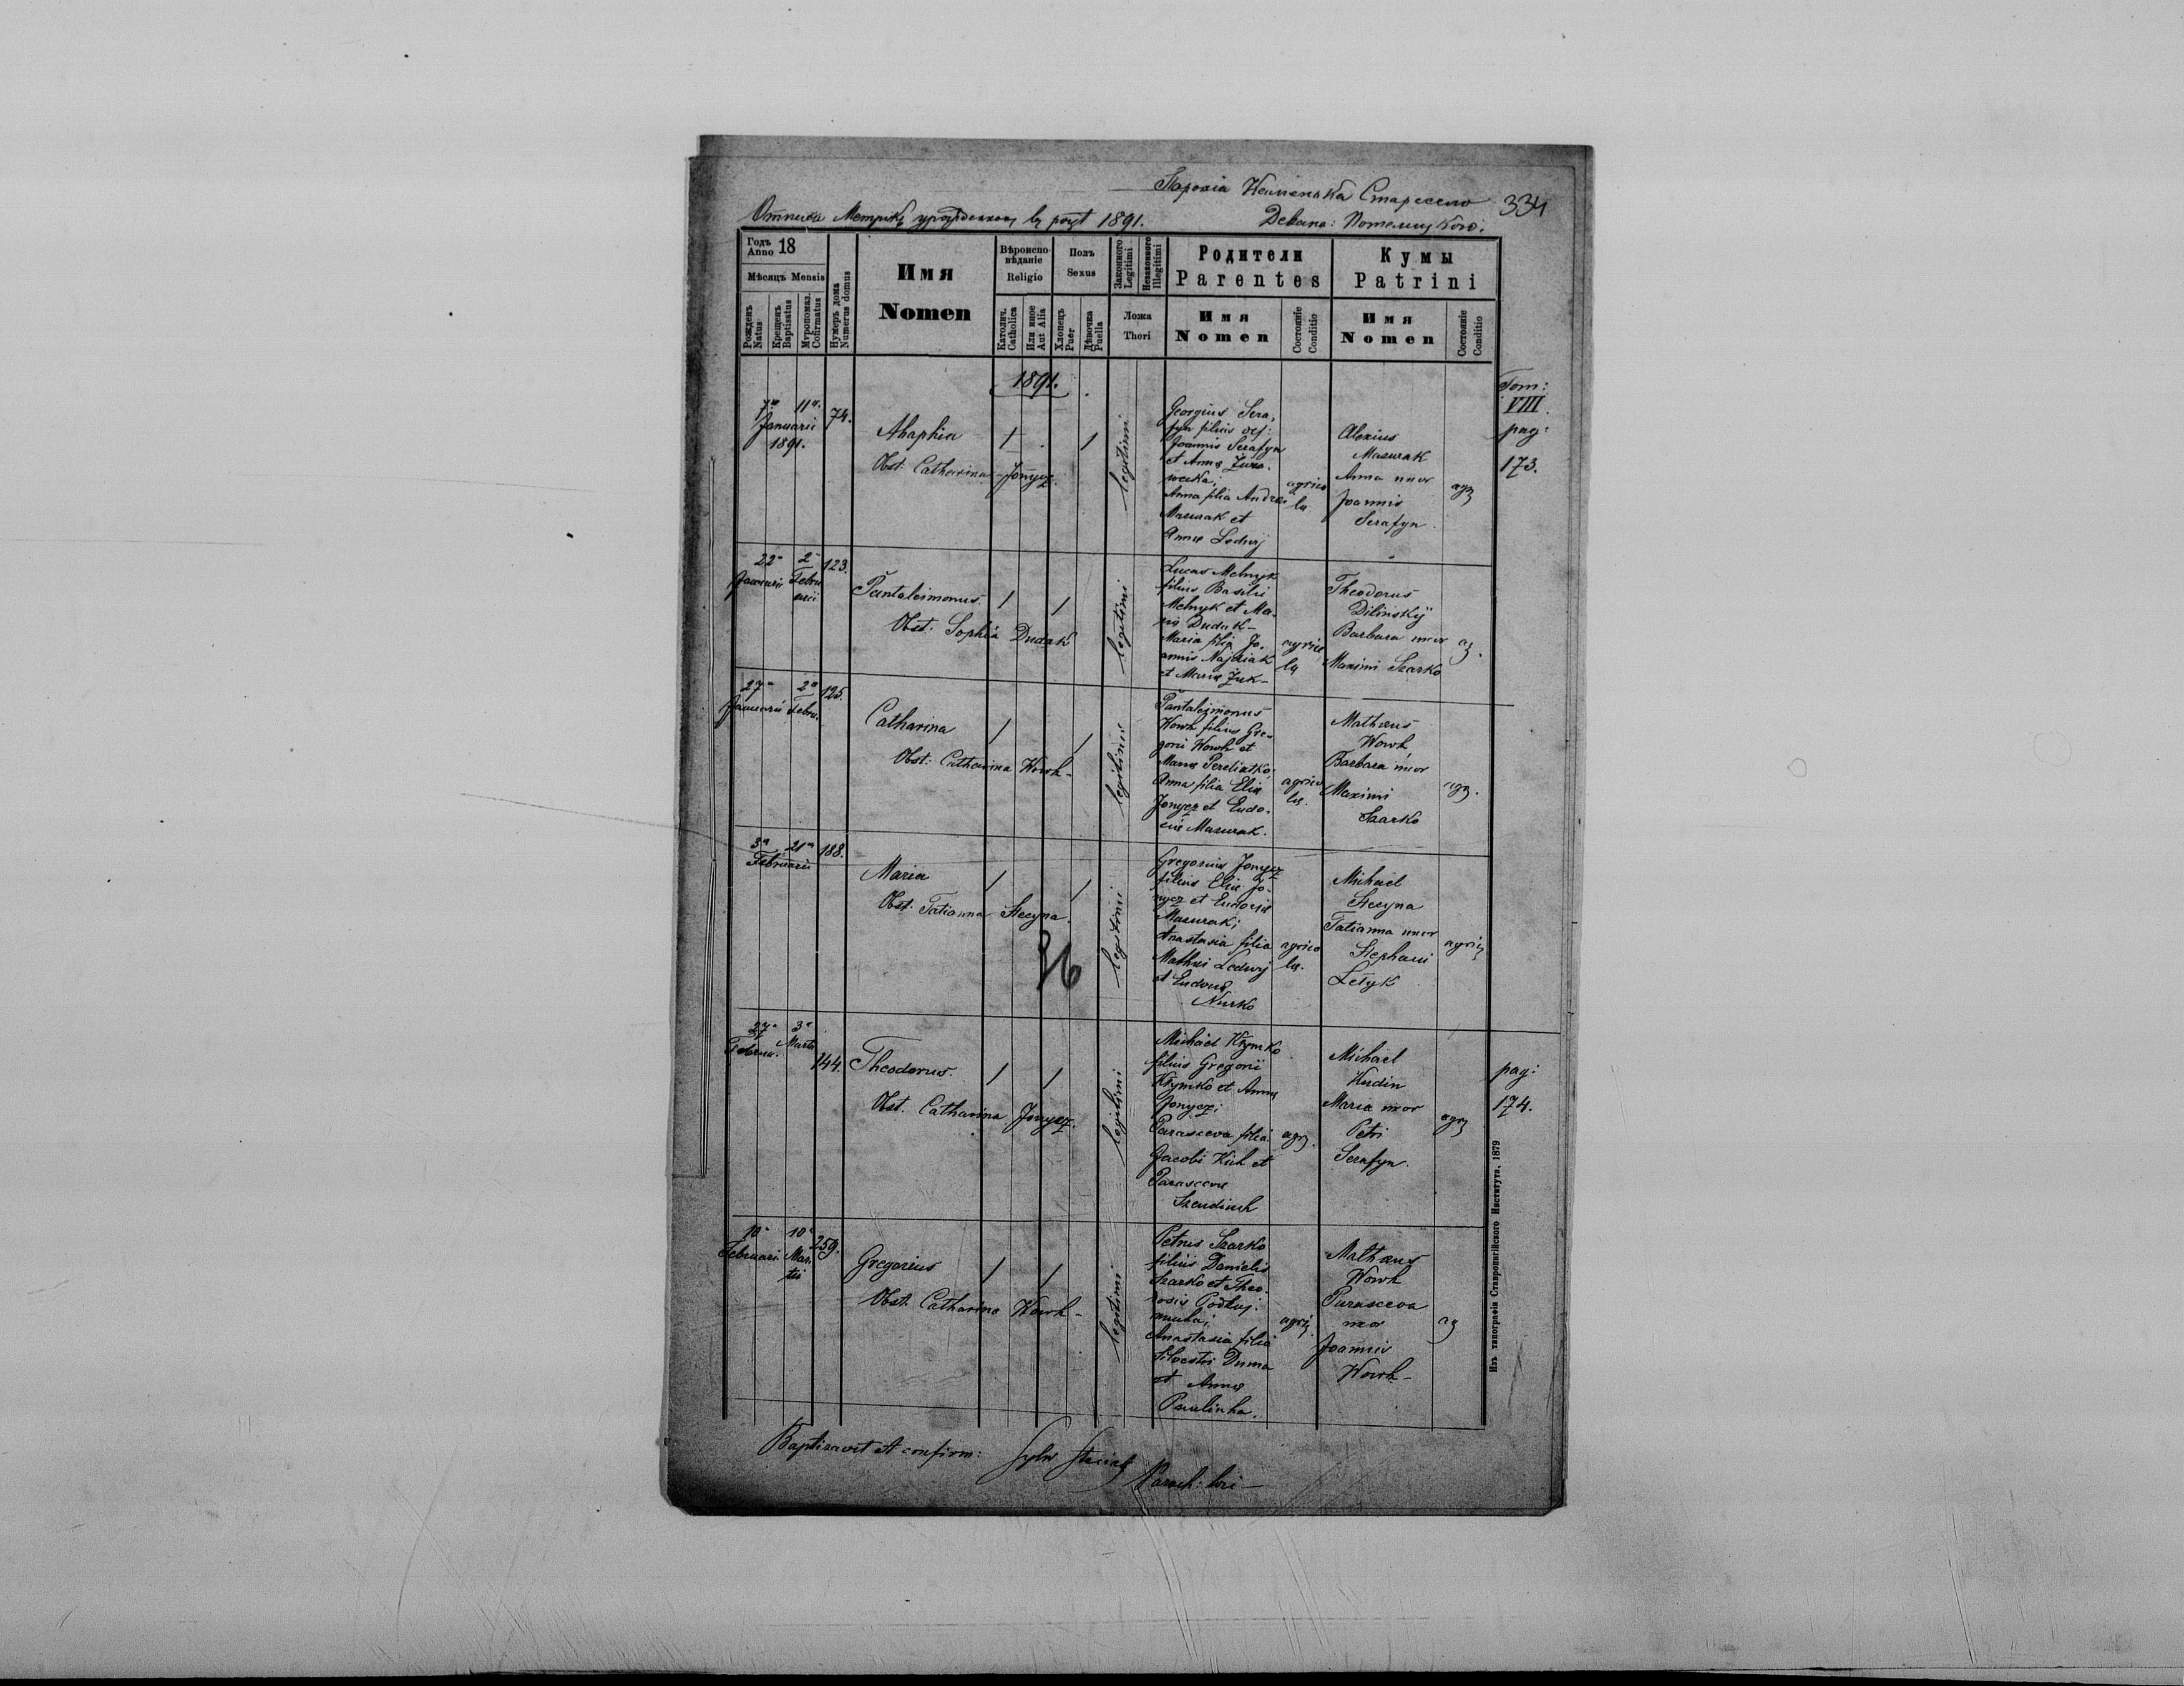 Парохія Каменка Старесело 334
Отписъ Метрикъ урожденныхъ въ роцѣ 1891. Декана: Потелицкого.
Годъ Anno 18
Мѣсяцъ Mensis
Рожденъ Natus
Крещенъ Baptisatus
Мѵропомаз. Cofirmatus
Нумеръ дома Numerus domus
Имя
Nomen
Вѣроисповѣданіе
Religio
Католич. Catholica
Или иное Aut Alia
Полъ
Sexus
Хлопецъ Puer
Дѣвочка Puella
Законного Legitimi
Незаконного Illegitimi
Ложа
Thori
Родители
Parentes
Имя
Nomen
Состояніе Conditio
Кумы
Patrini
Имя
Nomen
Состояніе Conditio
1891.
Tom:
VIII.
pag:
173.
7a 11a
Januarii
1891.
74.
Ahaphia / /
Obst. Catharina Jonycz.
legitimi
Georgius Sera-
fyn filius def:
Joannis Serafyn
et Annæ Zura-
wecka;
Anna filia Andreæ
Masurak et
Annæ Ledwij
agrico
læ
Alexius
Masurak
Anna uxor
Joannis
Serafyn
agr
22a 2a
Januarii Febru
arii
123.
Pantaleimonus. / /
Obst. Sophia Dudak
legitimi
Lucas Melnyk
filius Basilii
Melnyk et Ma-
riæ Dudak-
Maria filia Jo-
annis Najdiak
et Mariæ Zuk-
agrico
læ
Theodorus
Dilinskij
Barbara uxor
Maximi Szarko
ag.
27a 2a
Januarii Febru.
125.
Catharina / /
Obst. Catharina Kowh-
legitimi
Pantaleimonus
Kowh filius Gre-
gorii Kowh et
Mariæ Pereliatko;
Anna filia Eliæ
Jonycz et Eudo-
ciæ Masurak.
agrico
læ.
Mathæus
Kowh,
Barbara uxor
Maximi
Szarko
agr.
3a 21a
Februarii
188.
Maria / /
Obst. Tatianna Stecyna.
36
legitimi
Gregorius Jonycz
filius Eliæ Jo-
nycz et Eudociæ
Masurak;
Anastasia filia
Mathæi Ledwij
et Eudociæ
Nurko
agrico
læ.
Michael
Stecyna
Tatianna uxor
Stephani
Letyk
agric
27a 3a
Februa. Martii
144.
Theodorus. / /
Obst. Catharina Jonycz.
legitimi
Michael Krymko
filius Gregorii
Krymko et Annæ
Jonycz;
Parasceva filia
Jacobi Kich et
Parascevæ
Szendiuch
agr.
Michael
Kudin
Maria uxor
Petri
Serafyn.
agr
pag:
174.
10a 10a
Februari. Mar-
tii
259.
Gregorius / /
Obst. Catharina Kowh-
legitimi
Petrus Szarko
filius Danielis
Szarko et Theo-
Anastasia filia
Silvestri Duma
et Annæ
Paulinha.
agric
Mathæus
Kowh
Parasceva
uxor
Joannis
Kowh-
ag
Изъ типографіи Ставропигійского Института, 1879
Baptisavit et confirm:
Paroch: loci-